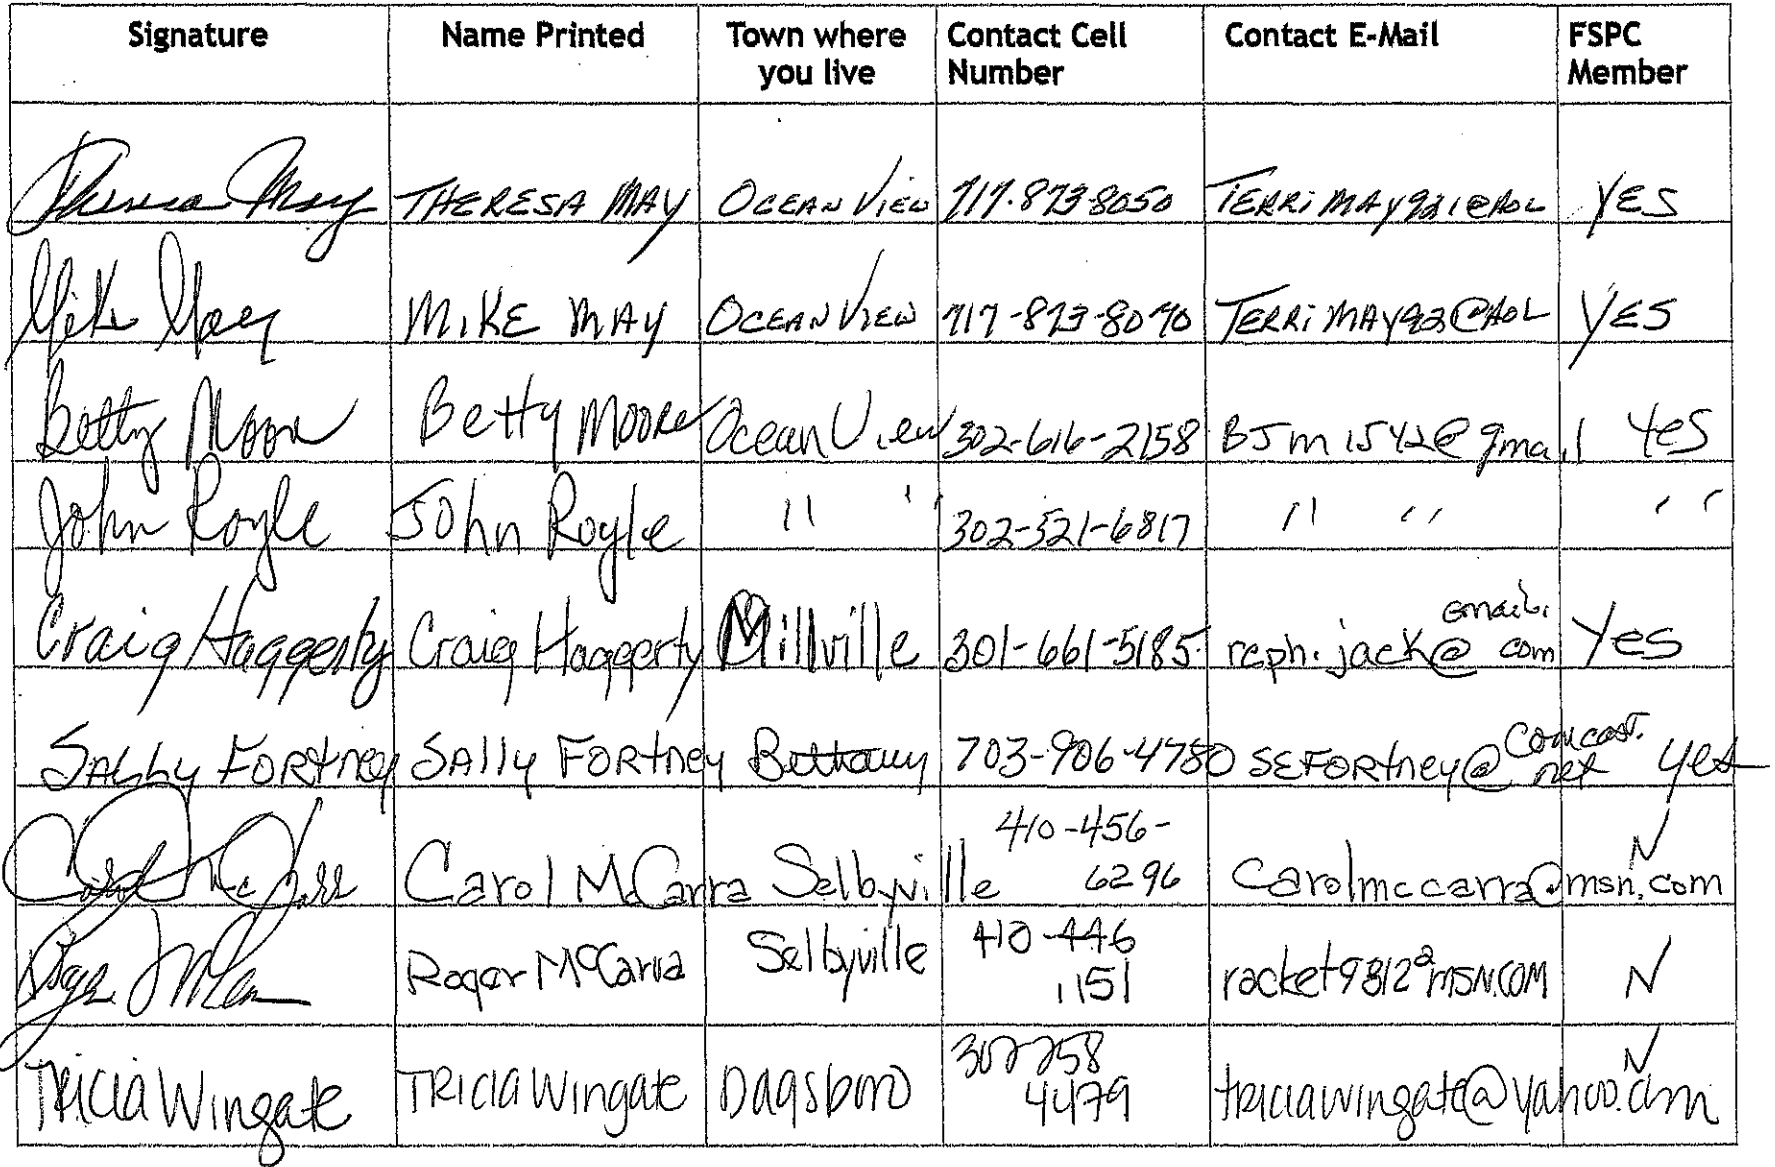 Signature Name Printed Town where you live Contact Cell Number Contact E-Mail FSPC Member
Theresa May THERESA MAY OCEAN VIEW 717-873-8050 TERRIMAY921@AOL YES
Mike May MIKE MAY OCEAN VIEW 717-873-8070 TERRIMAY92@AOL YES
Betty Moore Betty Moore Ocean View 302-616-2158 BJm1542@gmail Yes
John Royle John Royle " " 302-521-6817 " " " "
Craig Haggerty Craig Haggerty Millville 301-661-5185 reph.jack@ email. com Yes
SALLY FORtney SAlly FORtney Bethany 703-906-4780 SEFORtney@comcast.net yes
Carol McCarra Carol McCarra Selbyville 410-456-6296 carolmccarra@msn.com N
Roger McCarra Selbyville 410-446 1151 racket9812@MSN.COM N
TRICIA Wingate TRICIA Wingate Dagsboro 302 258 4479 triciawingate@yahoo.com N